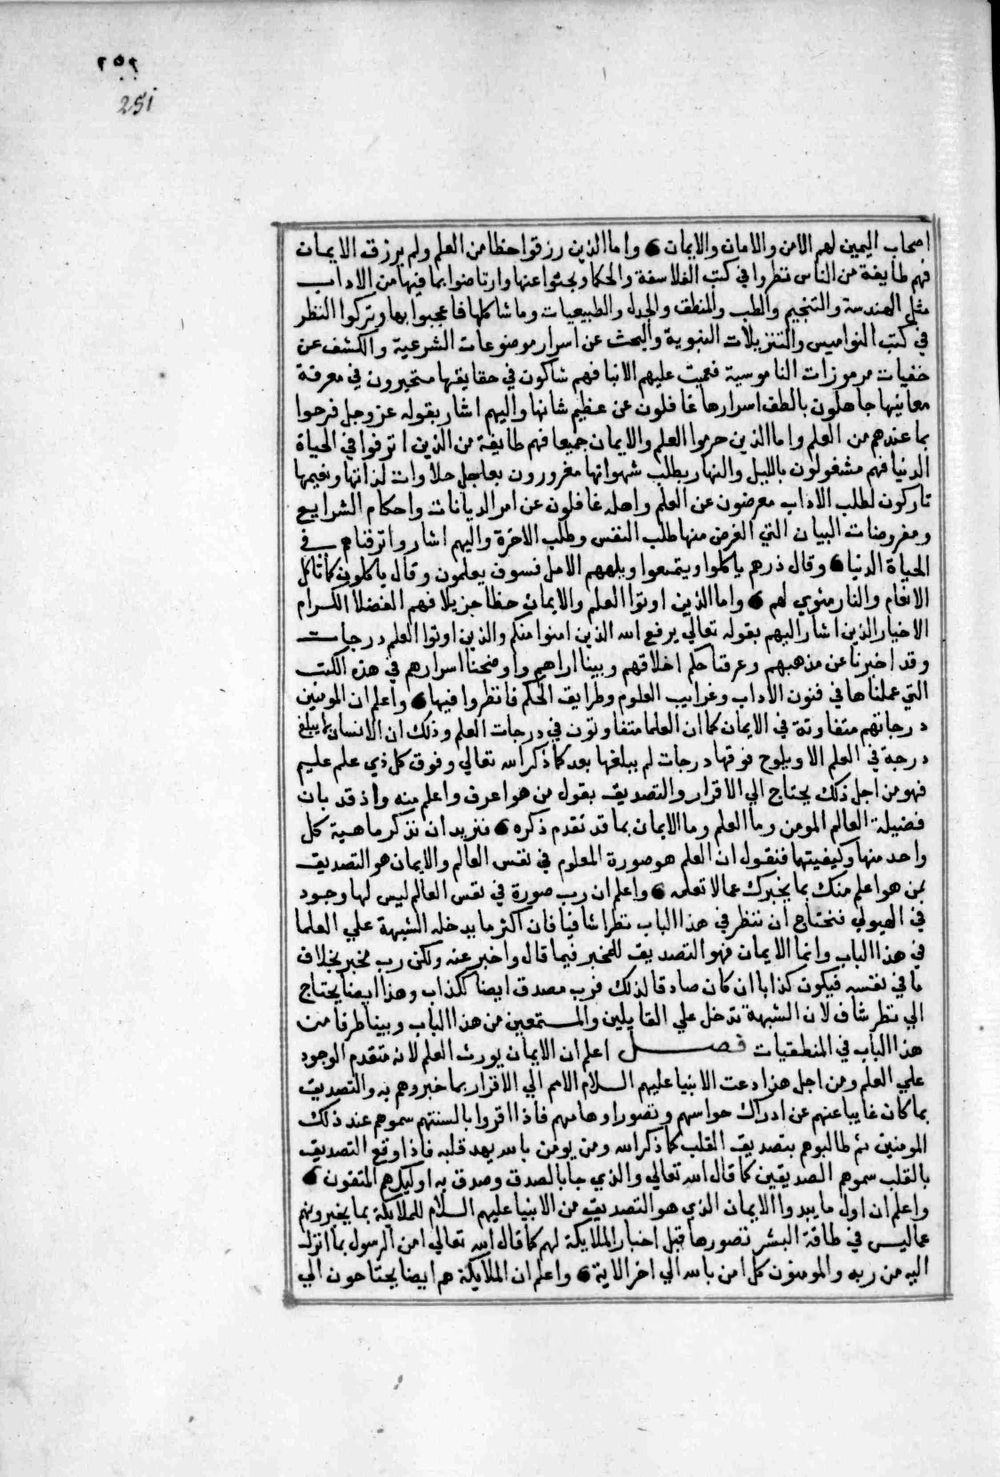 ٢٥٢
251
اصحاب اليمين لهم الامن والامان والايمان ٥ واما الذين رزقوا حظا من العلم ولم يرزق الايمان
فهم طايفة من الناس نظروا في كتب الفلاسفة والحكما وبحثوا عنها وارتاضوا بما فيها من الاداب
مثل الهندسة والتنجيم والطب والمنطق والجدل والطبيعيات وما شاكلها فاعجبوا بها وتركوا النظر
في كتب النواميس والتنزيلات النبوية والبحث عن اسرار موضوعات الشرعية والكشف عن
خفيات مرموزات الناموسية فعميت عليهم الانبا فهم شاكون في حقايقها متحيرون في معرفة
معانيها جاهلون بالطف اسرارها غافلون عن عظيم شانها واليهم اشار بقوله عز وجل فرحوا
بما عندهم من العلم واما الذين حرموا العلم والايمان جميعا فهم طايفة من الذين اترفوا في الحياة
الدنيا فهم مشغولون بالليل والنهار بطلب شهواتها مغرورون بعاجل حلاوات لذاتها ونعيمها
تاركون لطلب الاداب معرضون عن العلم واهله غافلون عن امر الديانات واحكام الشرايع
ومفروضات البيان التي الغرض منها طلب النفس وطلب الاخرة واليهم اشار واترفناهم في
الحياة الدنيا ٥ وقال ذرهم ياكلوا ويتمتعوا ويلههم الامل فسوف يعلمون وقال ياكلون كما تاكل
الانعام والنار مثوي لهم ٥ واما الذين اوتوا العلم والايمان حظا جزيلا فهم الفضلا الكرام
الاخيار الذين اشار اليهم بقوله تعالي يرفع الله الذين امنوا منكم والذين اوتوا العلم درجات
وقد اخبرنا عن مذهبهم وعرفنا حكم اخلاقهم وبينا اراهم واوضحنا اسرارهم في هذه الكتب
التي عملناها في فنون الاداب وغرايب العلوم وطرايف الحكم فانظروا فيها ٥ واعلم ان المومنين
درجاتهم متفاوتة في الايمان كما ان العلما متفاوتون في درجات العلم وذلك ان الانسان ما يبلغ
درجة في العلم الا ويلوح فوقها درجات لم يبلغها بعد كما ذكر الله تعالي وفوق كل ذي علم عليم
فهو من اجل ذلك يحتاج الي الاقرار والتصديق بقول من هو اعرف واعلم منه واذ قد بان
فضيلة العالم المومن وما العلم وما الايمان بما قد تقدم ذكره ٥ فنريد ان نذكر ماهية كل
واحد منها وكيفيتها فنقول ان العلم هو صورة المعلوم في نفس العالم والايمان هو التصديق
بمن هو اعلم منك بما يخبرك عما لا تعلمه ٥ واعلم ان رب صورة في نفس العالم ليس لها وجود
في الهيولي فنحتاج ان ننظر في هذا الباب نظرا شافيا فان اكثر ما يدخله الشبهة علي العلما
في هذا الباب وانما الايمان فهو التصديق للمخبر فيما قال واخبر عنه ولكن رب مخبر بخلاف
ما في نفسه فيكون كذابا ان كان صادقا لذلك فرب مصدق ايضا كذاب وهذا ايضا يحتاج
الي نظر شاف لان الشبهة تدخل علي القايلين والمستمعين من هذا الباب وبينا طرفا من
هذا الباب في المنطقيات فصل اعلم ان الايمان يورث العلم لانه متقدم الوجود
علي العلم ومن اجل هذا دعت الانبيا عليهم السلام الامم الي الاقرار بما خبروهم به والتصديق
بما كان غايبا عنهم عن ادراك حواسهم وتصور اوهامهم فاذا اقروا بالسنتهم سموهم عند ذلك
المومنين ثم طالبوهم بتصديق القلب كما ذكر الله ومن يومن بالله يهد قلبه فاذا وقع التصديق
بالقلب سموهم الصديقين كما قال الله تعالي والذي جا بالصدق وصدق به اوليك هم المتقون ٥
واعلم ان اول ما يبدوا الايمان الذي هو التصديق من الانبيا عليهم السلام للملايكة بما يخبرونهم
عما ليس في طاقة البشر تصورها قبل اخبار الملايكة لهم كما قال الله تعالي امن الرسول بما انزل
اليه من ربه والمومنون كل امن بالله الي اخر الاية ٥ واعلم ان الملايكة هم ايضا يحتاجون الي